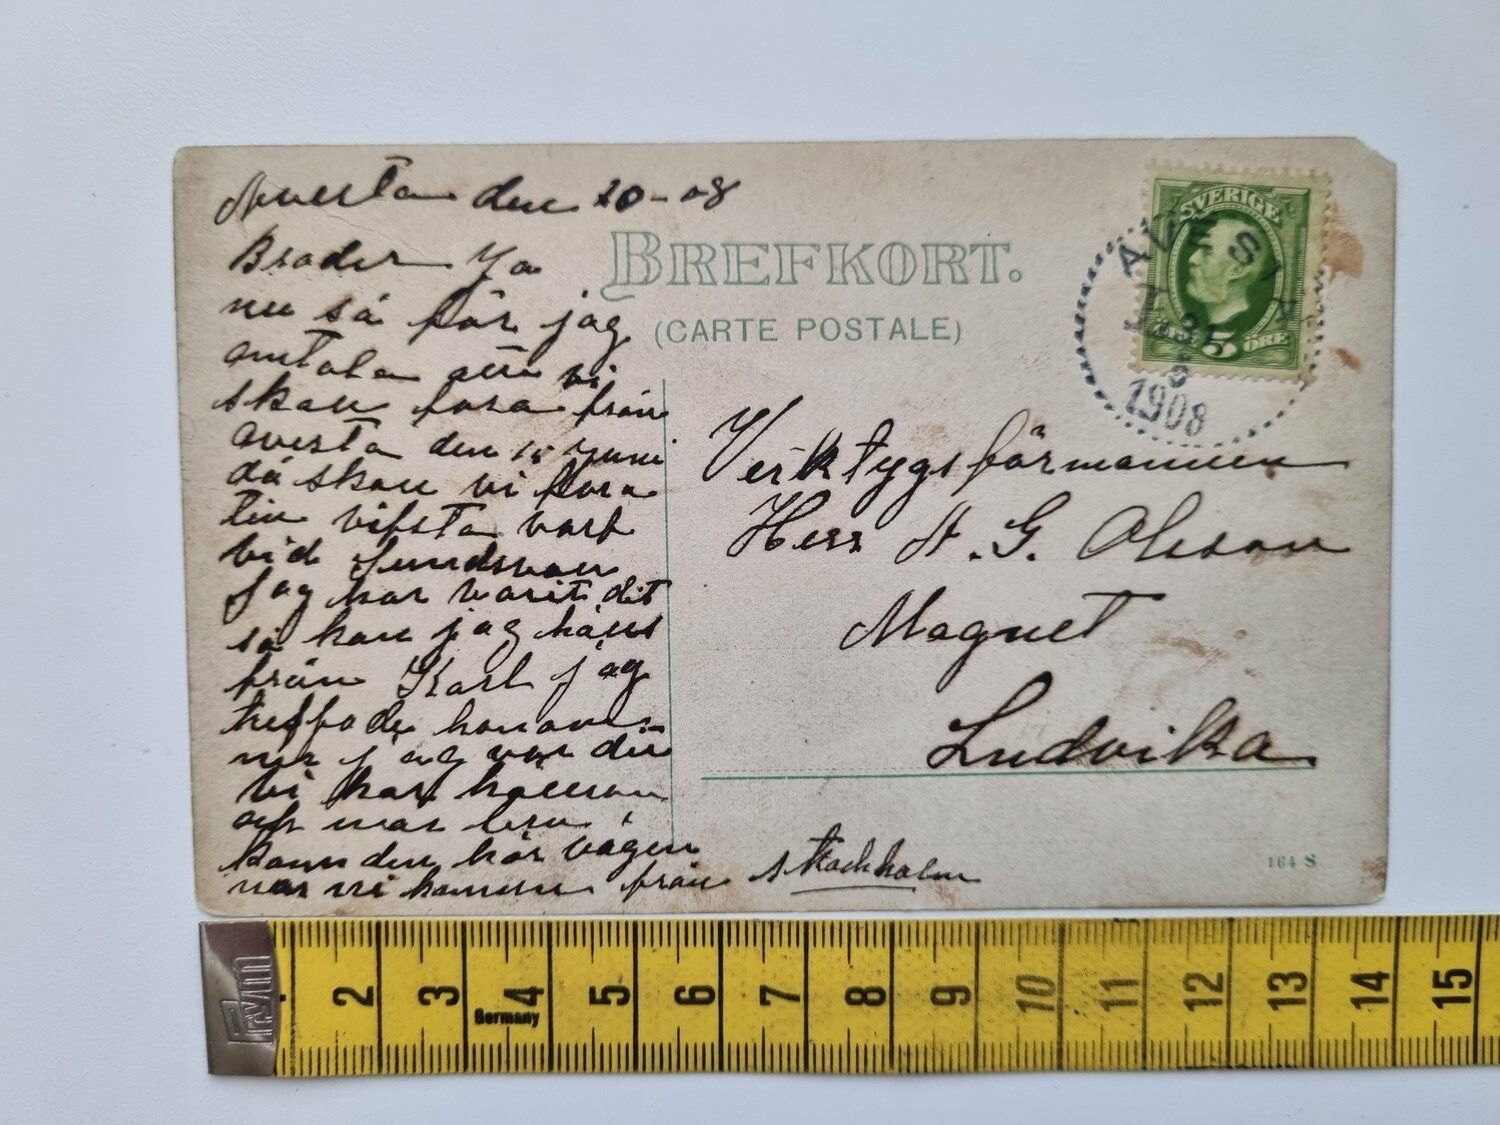 Avesta den 20-08
Broder Ja
nu så får jag
amtala att vi
skau fara från
avesta den 15 juni
då skau vi fara
tin vifsta varf
vid Sundsvau
Jag har varit dit
så kan jag häns
från Karl jag
treffade honom
när jag var där
vi har
och mar bra
kan den här vägen
när vi kommer från stockholm
BREFKORT.
(CARTE POSTALE)
SVERIGE
5 ÖRE
AVESTA
31
5
1908
Verktygsförmannen
Herr A. G. Olsson
Magnet
Ludvika.
164 S
PYM
2 3 4 5 6 7 8 9 10 11 12 13 14 15
Germany